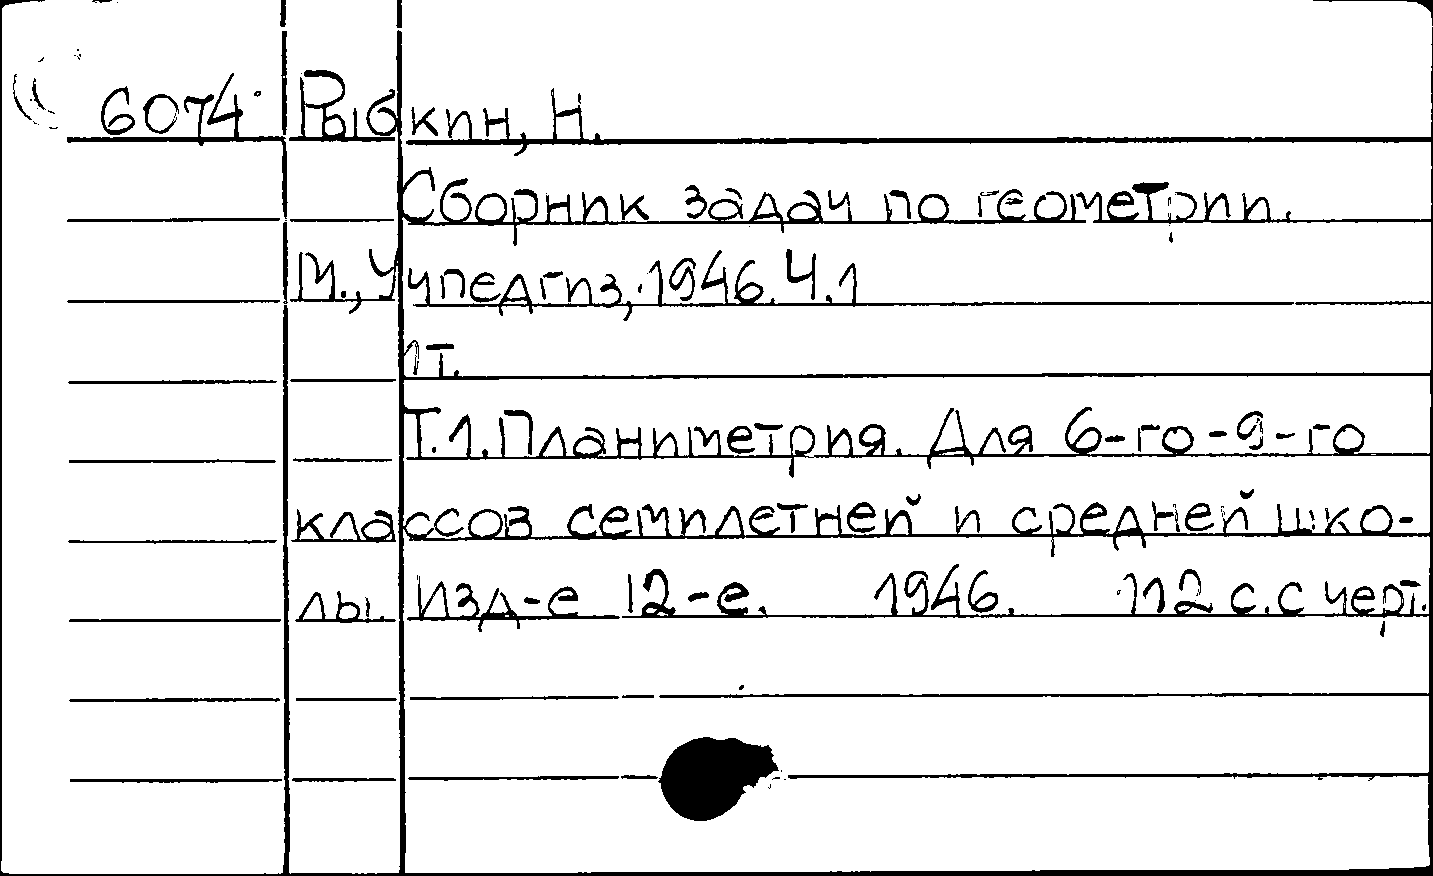 6074 Рыбкин, Н.
Сборник задач по геометрии.
М., Учпедгиз, 1946. Ч.1
1т.
Т.1. Планиметрия. Для 6-го-9-го
классов семилетней и средней шко-
лы. Изд-е 12-е. 1946. 112 с. с черт.